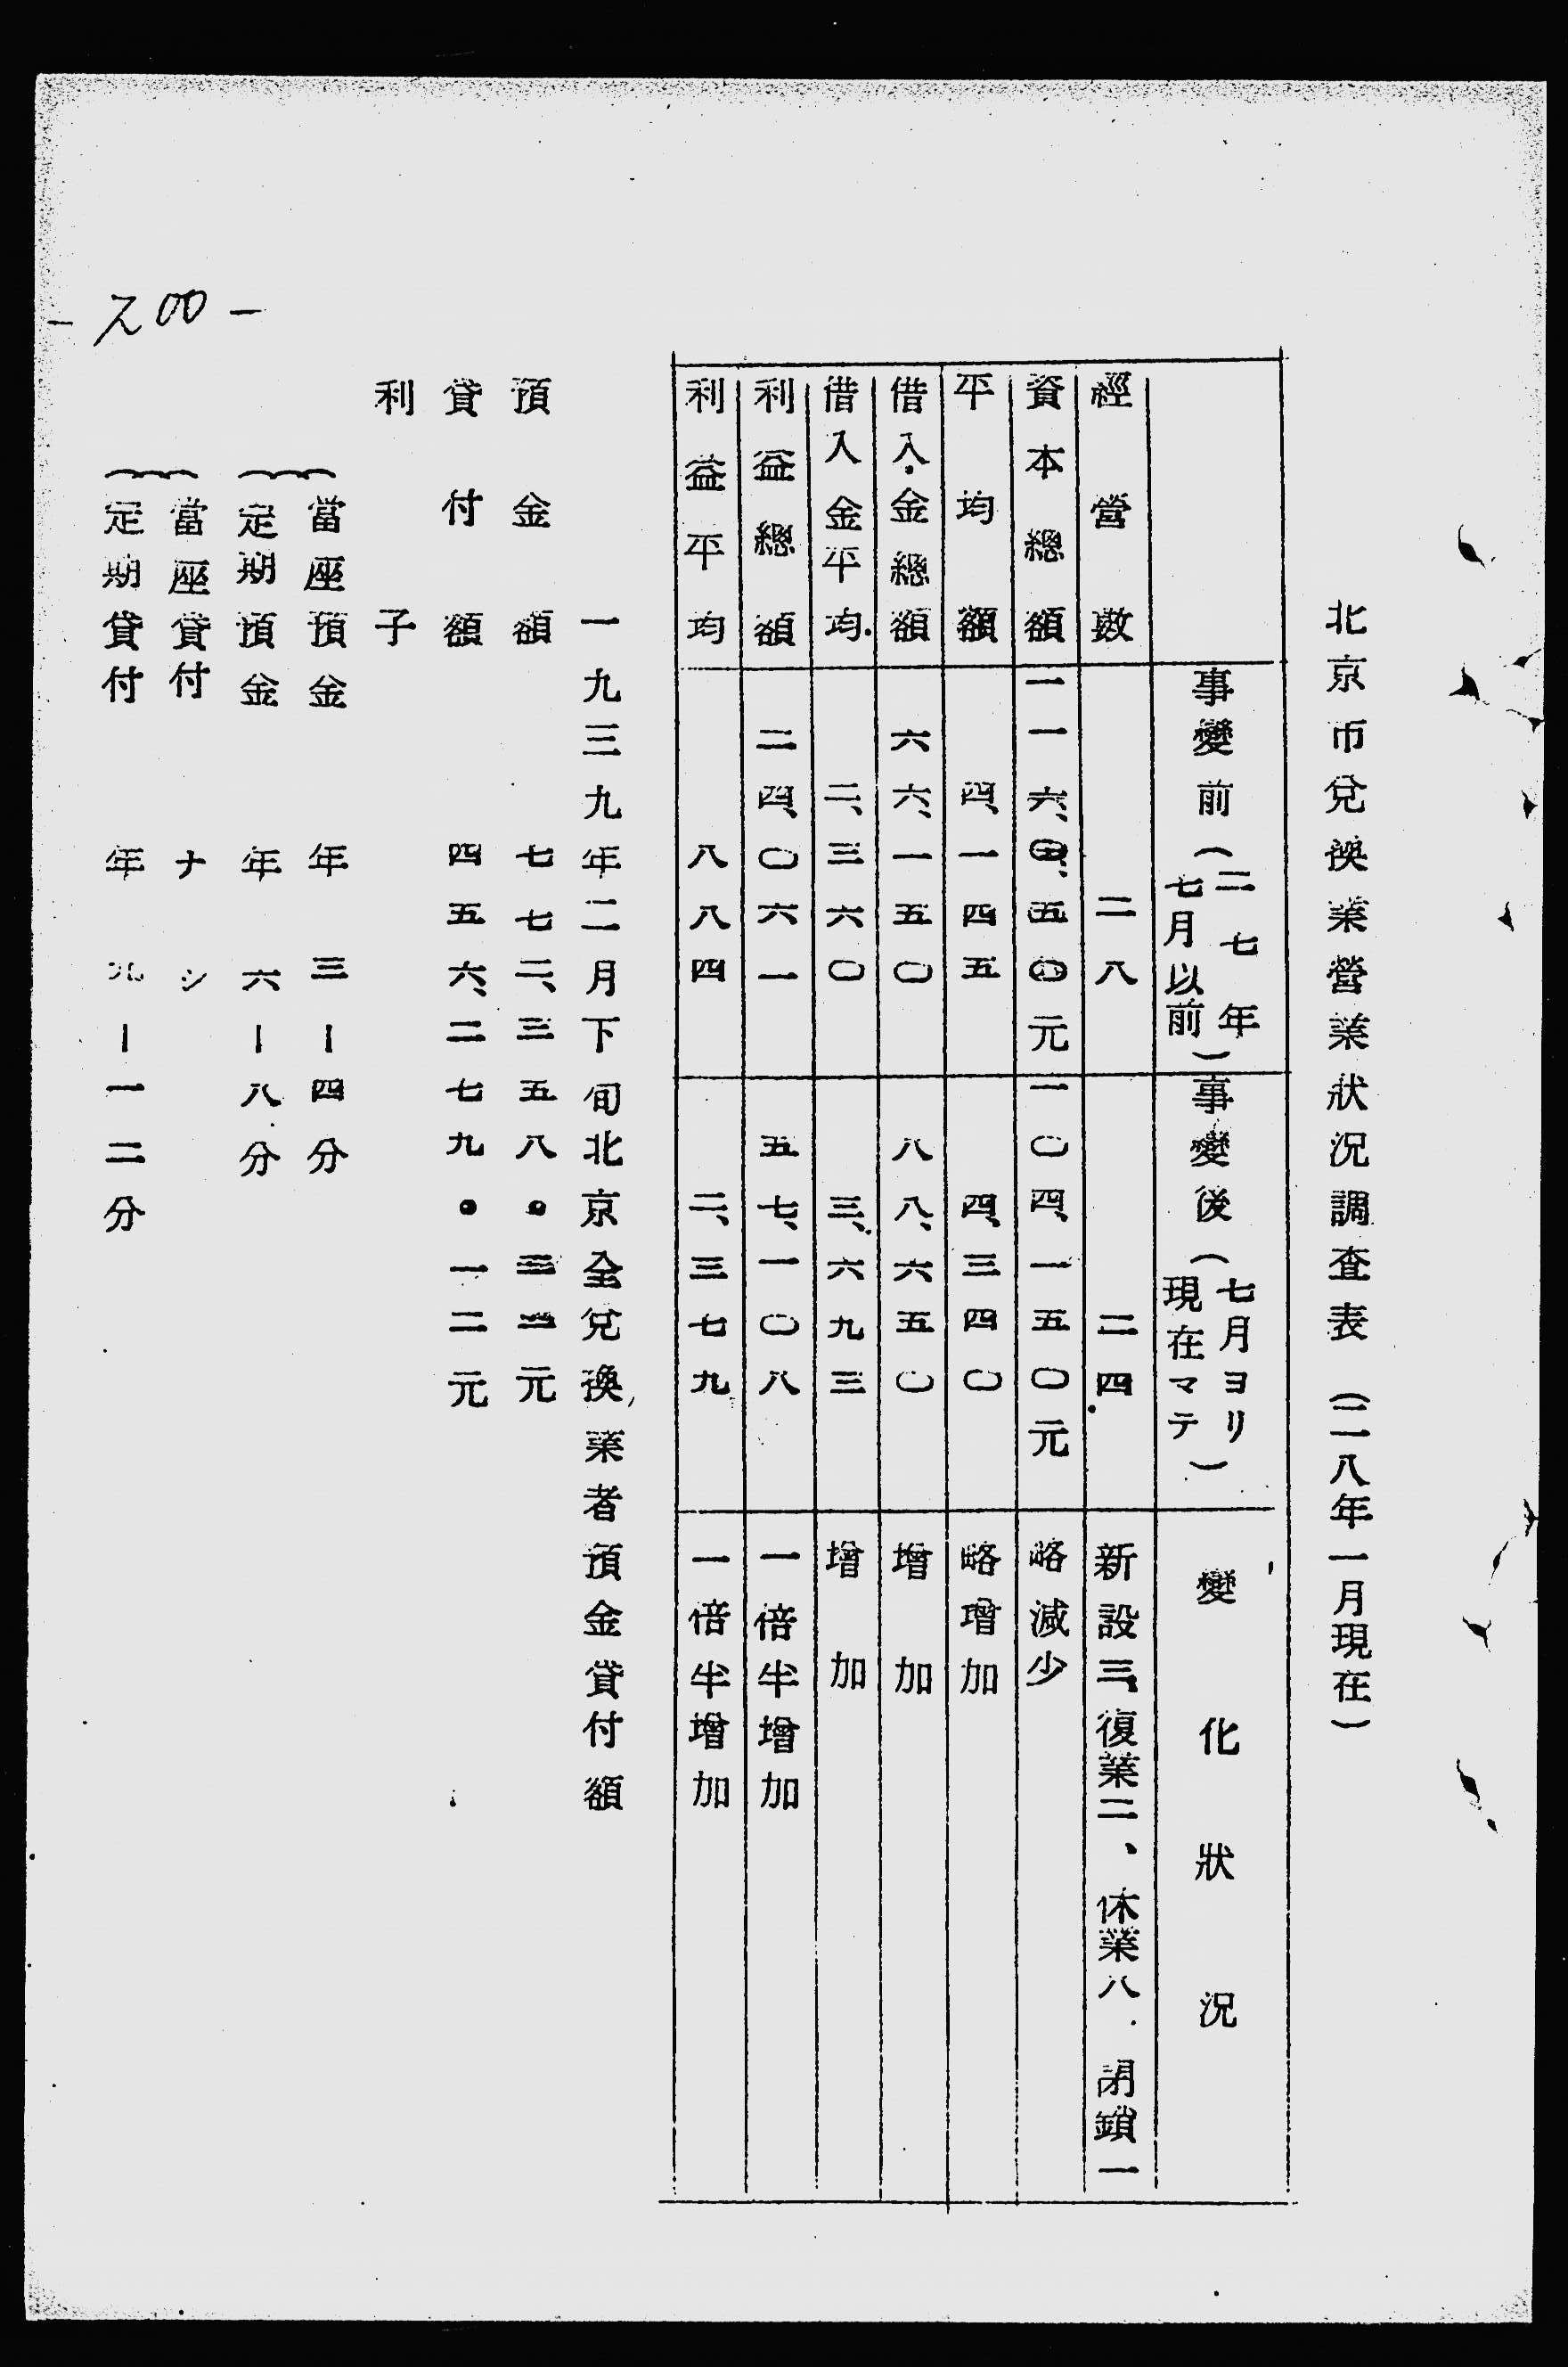 北京币兌換業營業狀況調査表　（二八年一月現在）
事變前（二七年七月以前）　事變後（七月ヨリ現在マテ）　變化狀況
經營數　二八　二四　新設三、復業二、休業八．閉鎖一
資本總額　一〇四、一五〇元　略減少
平均額　四、一四五　四、三四〇　略增加
借入金總額　六六、一五〇　八八、六五〇　增加
借入金平均　二、三六〇　三、六九三　增加
利益總額　二四、〇六一　五七、一〇八　一倍半增加
利益平均　八八四　二、三七九　一倍半增加
一九三九年二月下旬北京全兌換業者預金貸付額
預金額　七七二、三五八・元
貸付額　四五六、二七九・一二元
利子
當座預金　年三—四分
定期預金　年六—八分
當座貸付　ナシ
定期貸付　年九—一二分
- 200 -